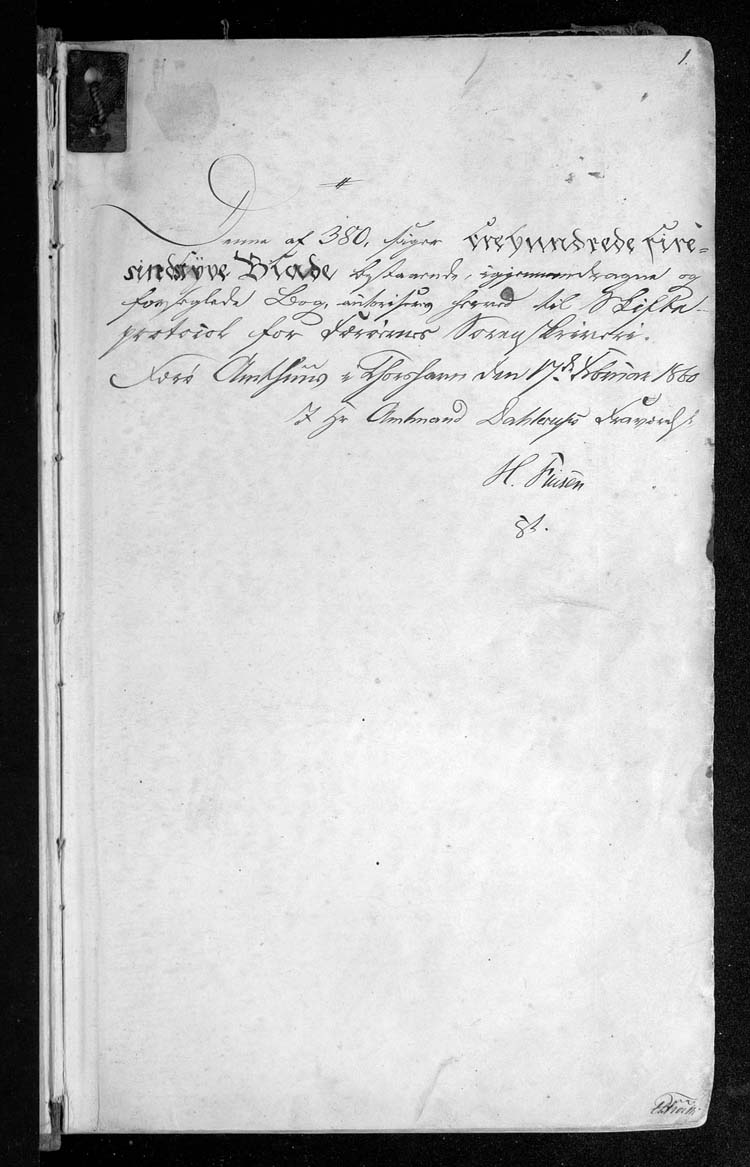 1.
Denne af 380, siger Trehundrede Fire-
sindstyve Blade bestaaende, igjennemdragne og
forseglede Bog, autoriseres herved til Skifte-
protocol for Færøernes Sorenskriveri.
Færø Amthuus i Thorshavn den 17d Februar 1860
I Hr Amtmand Dahlerups Fraværelse
H. Füsen